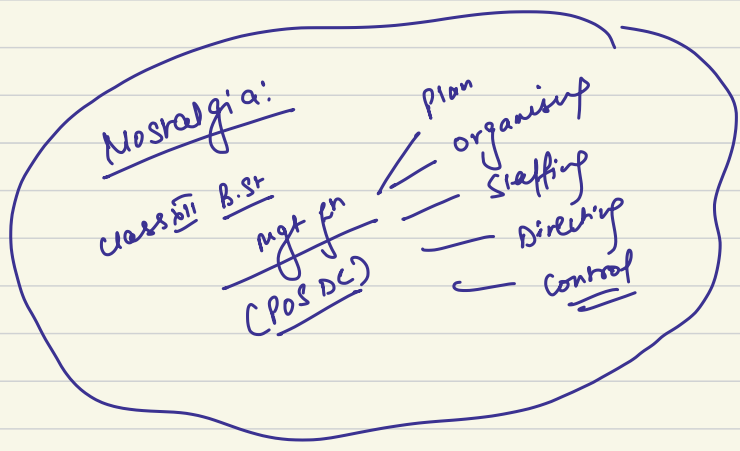 Nostalgia:
Class XII B.St
Mgt fn
(POSDC)
Plan
Organising
Staffing
Directing
Control